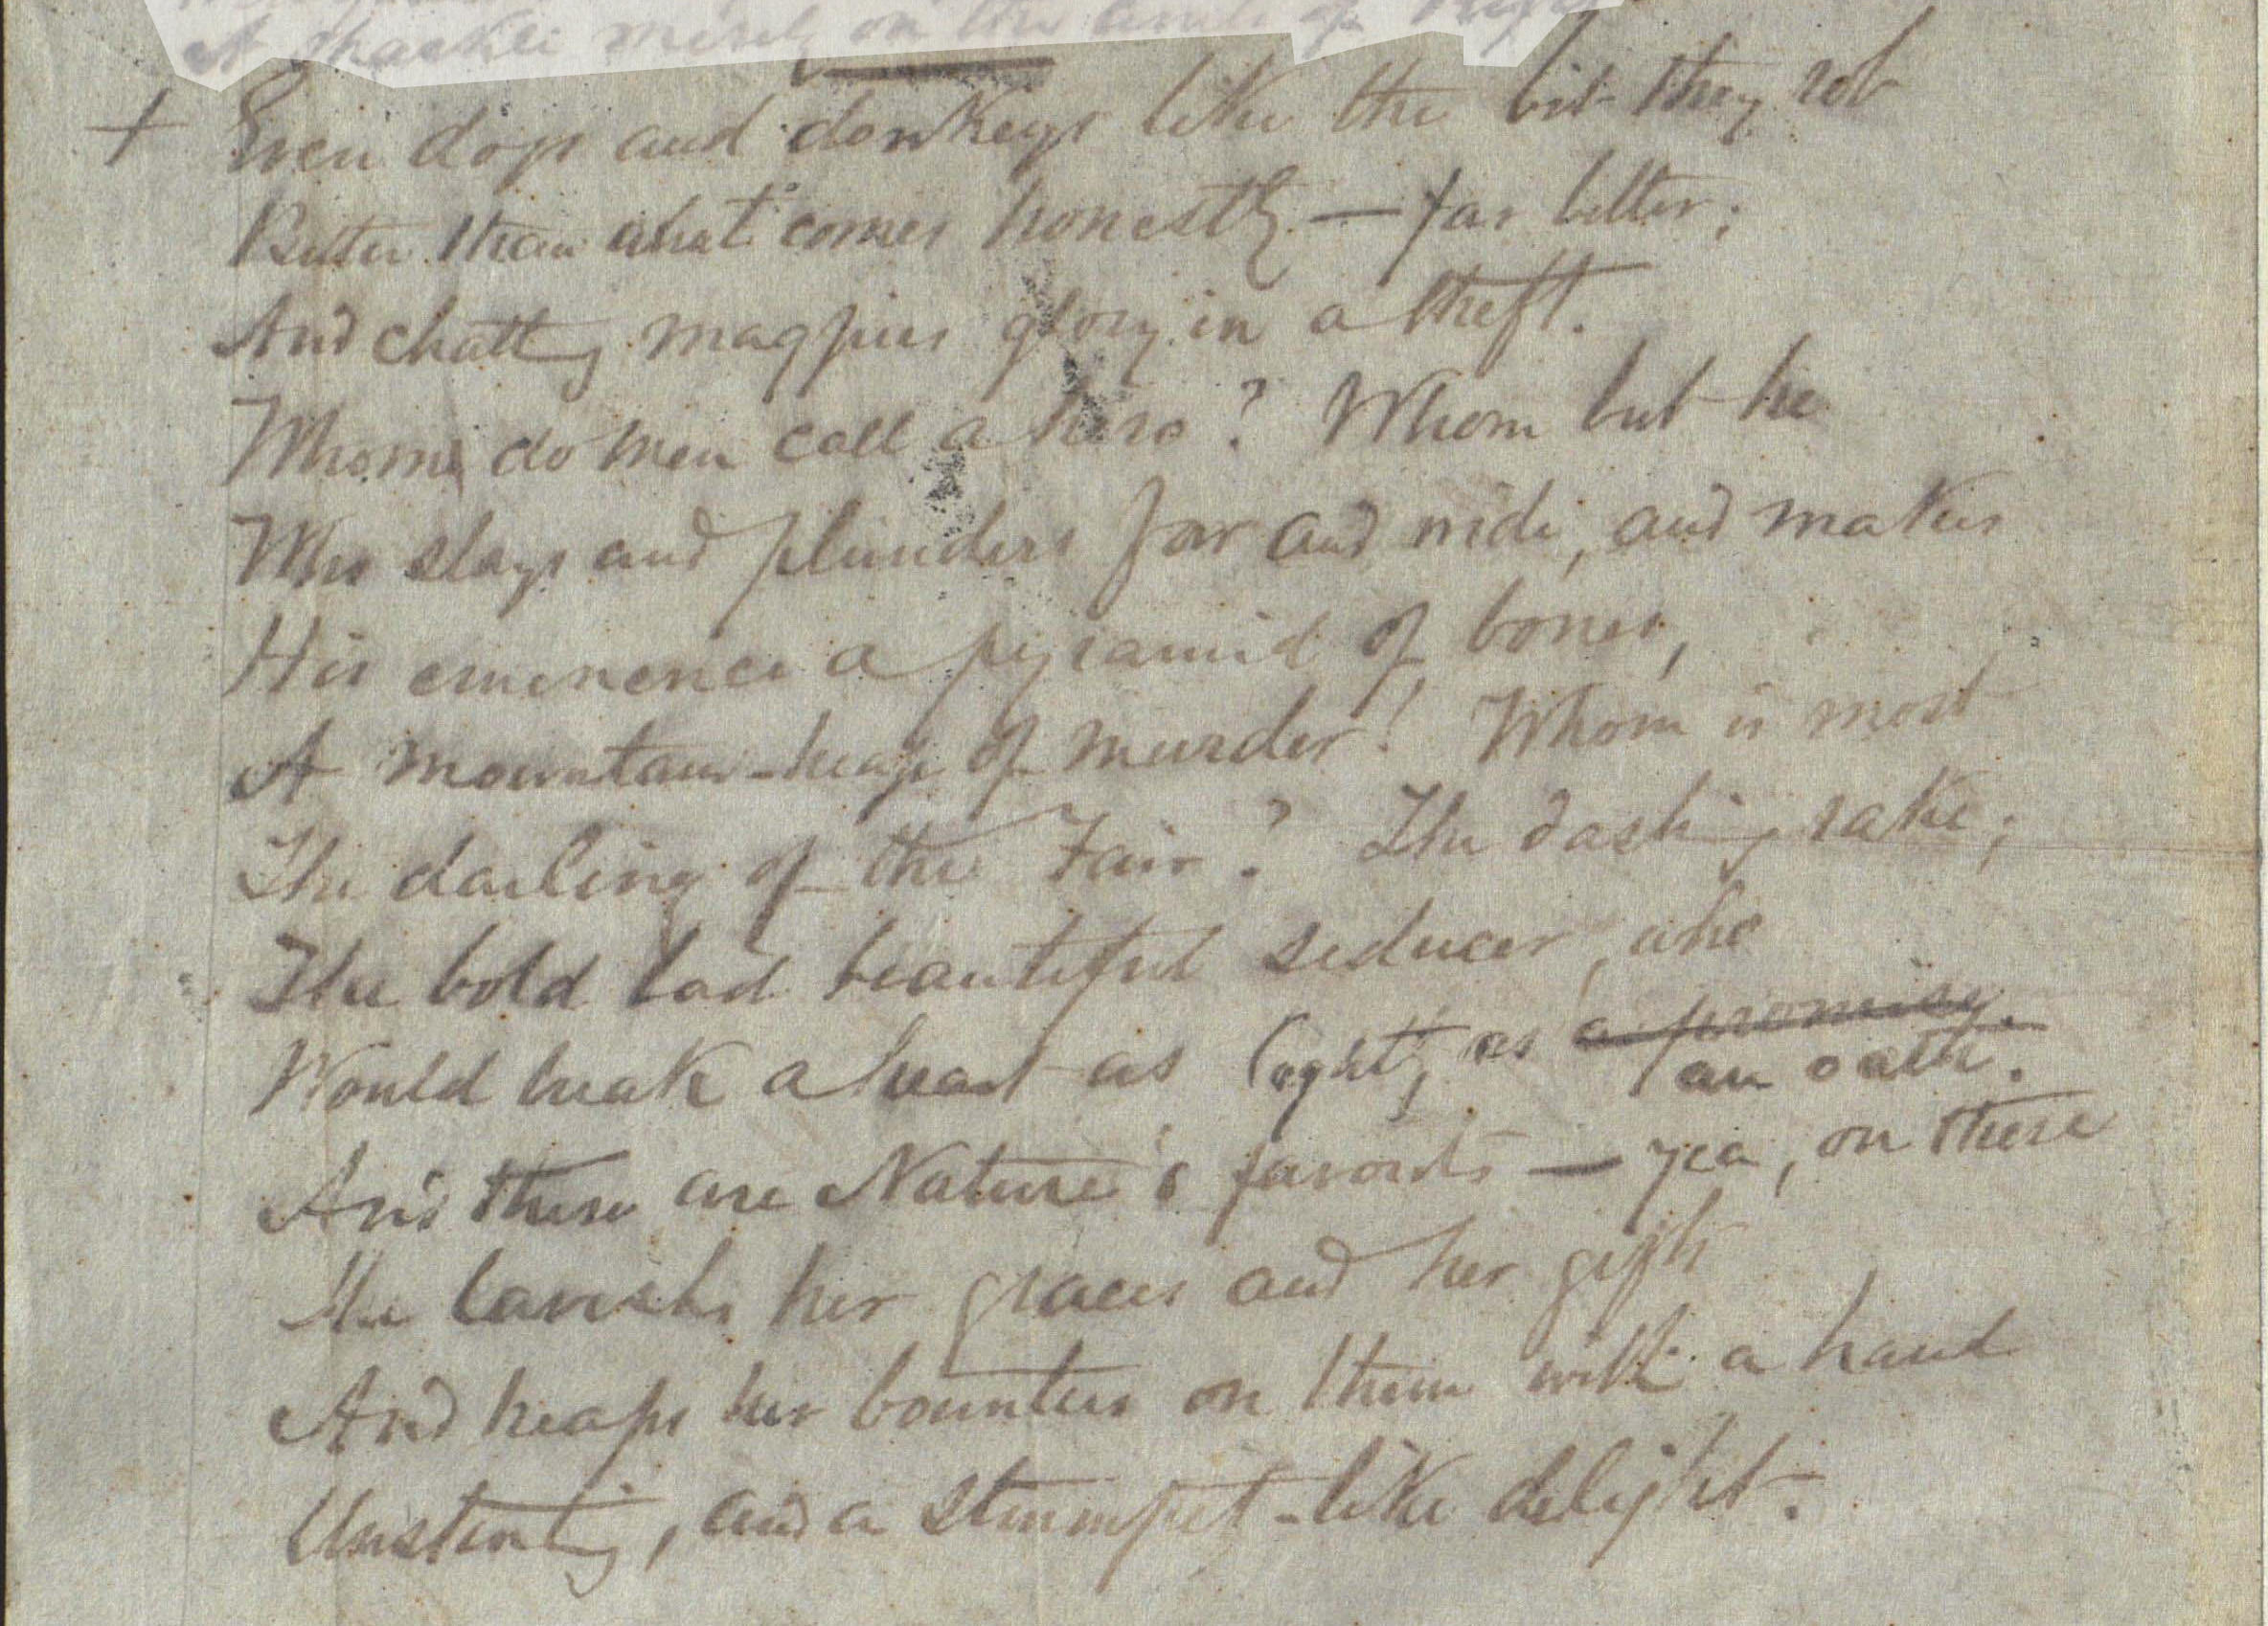 A shackle merely on the
+ Even dogs and donkeys like the bit they rob
Better than what comes honestly — far better;
And chattg magpies glory in a theft.
Whom do men call a hero? Whom but he
Who slays and plunders far and wide, and makes
His eminence a pyramid of bones,
A mountain-heap of murder! Whom is most
The darling of the Fair? The dashing rake;
The bold bad beautiful seducer, who
Would break a heart as lightly as a promise.
an oath.
And these are Nature's favorits — yea, on these
She lavishs her graces and her gifts
And heaps her bounties on them with a hand
Unstinting, and a strumpet-like delight.